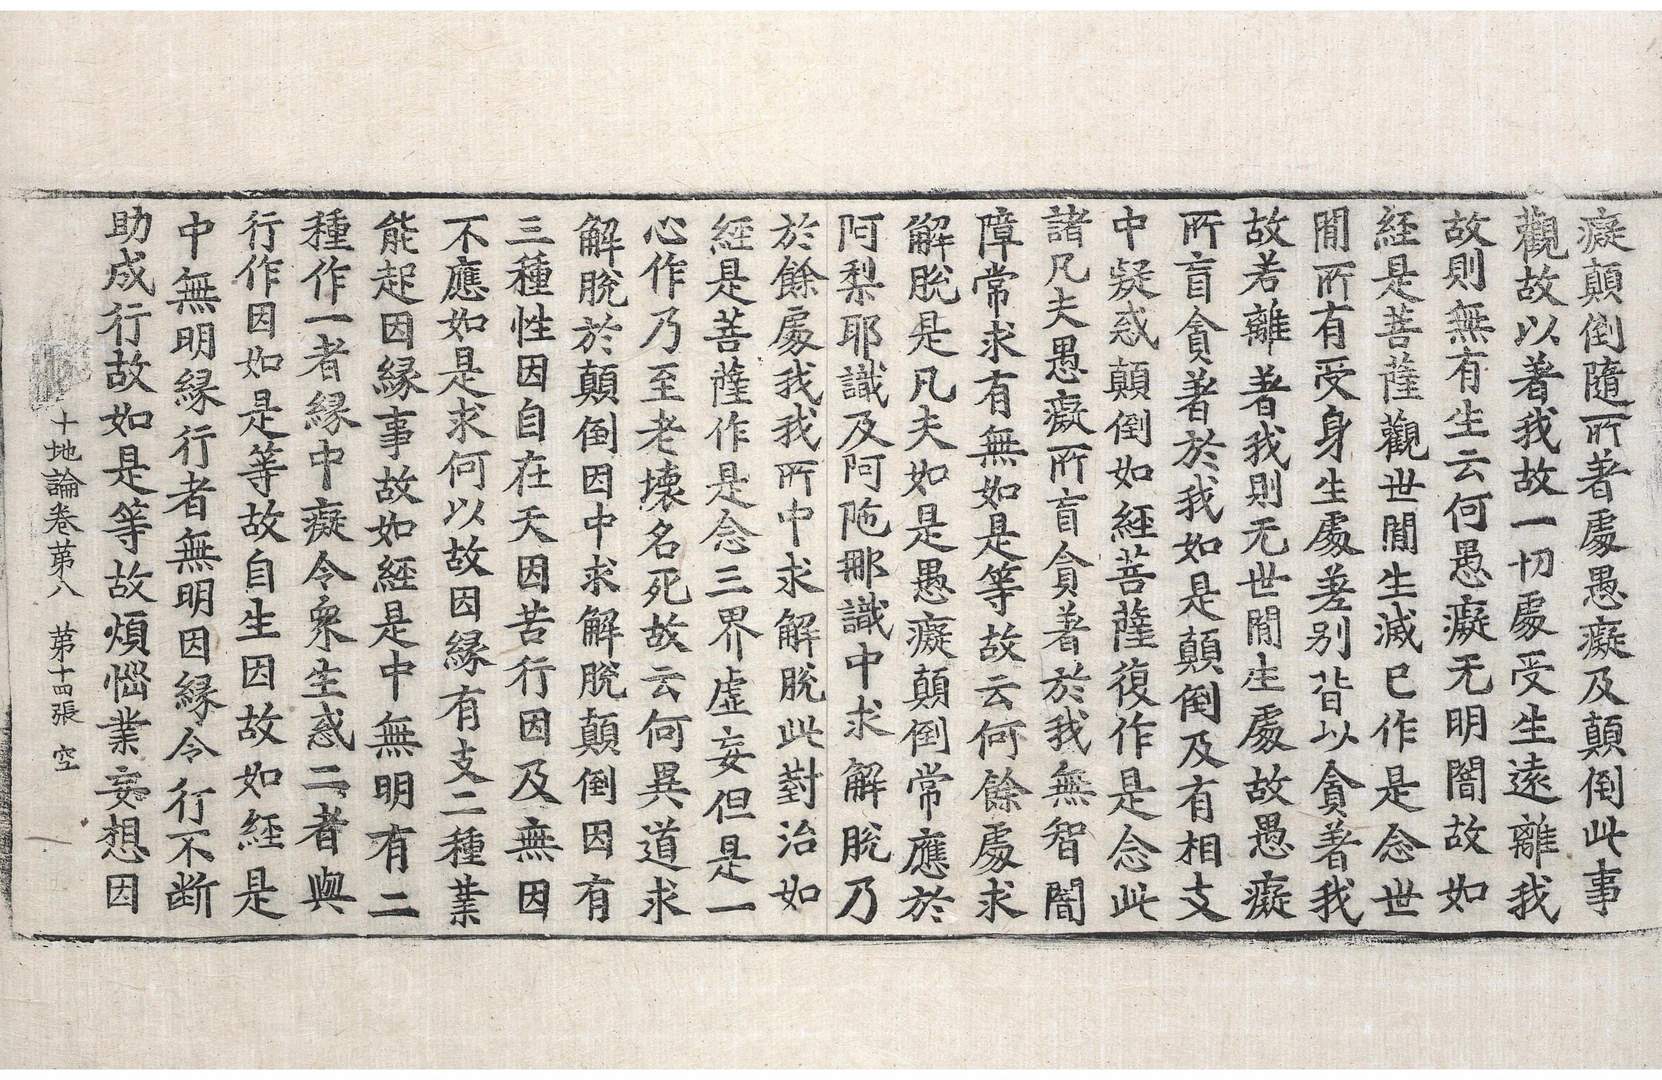 癡顛倒隨所著處愚癡及顛倒此事
觀故以著我故一切處受生遠離我
故則無有生云何愚癡无明闇故如
経是菩薩觀世間生滅已作是念世
間所有受身生處差别皆以貪著我
故若離著我則无世間生處故愚癡
所盲貪著於我如是顛倒及有相支
中疑惑顛倒如經菩薩復作是念此
諸凡夫愚癡所盲貪著於我無智闇
障常求有無如是等故云何餘處求
解脫是凡夫如是愚癡顛倒常應於
阿梨耶識及阿陁那識中求解脫乃
於餘處我我所中求解脫此對治如
經是菩薩作是念三界虛妄但是一
心作乃至老壊名死故云何異道求
解脫於顛倒因中求解脫顛倒因有
三種性因自在天因苦行因及無因
不應如是求何以故因縁有支二種業
能起因縁事故如經是中無明有二
種作一者縁中癡令衆生惑二者與
行作因如是等故自生因故如經是
中無明縁行者無明因縁令行不断
助成行故如是等故煩惱業妄想因
十地論卷苐八 苐十四張 空